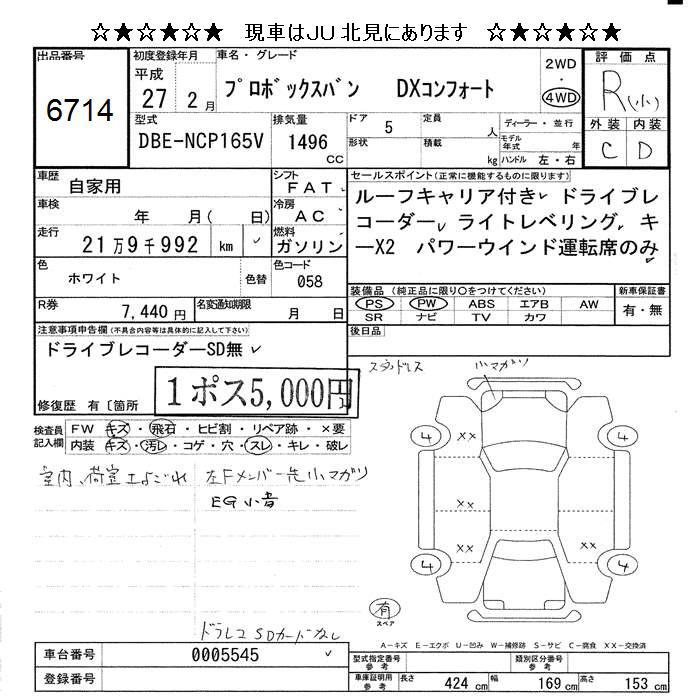 ☆★☆★☆★ 現車はJU北見にあります ☆★☆★☆★
出品番号 初度登録年月 車名・グレード 2WD・4WD 評価点
6714 平成27 2月 プロボックスバン DXコンフォート R(小)
型式 排気量 ドア 5 定員 人 ディーラー・並行 外装 内装
DBE-NCP165V 1496 CC 形状 積載 kg モデル年式 年 ハンドル 左・右 C D
車歴 自家用 シフト FAT セールスポイント(正常に機能するものに限ります)
車検 年 月( 日) 冷房 AC ルーフキャリア付き ドライブレ
走行 21万9千992 km 燃料 ガソリン コーダー ライトレベリング キ
ーX2 パワーウインド運転席のみ
色 ホワイト 色替 色コード 058
装備品(純正品に限り○をつけてください) 新車保証書
PS PW ABS エアB AW 有・無
SR ナビ TV カワ
R券 7,440円 名変通知期限 月 日
後日品
注意事項申告欄(不具合内容等は具体的に記入して下さい)
ドライブレコーダーSD無
スタッドレス 小マガリ
修復歴 有〔箇所
1ポス5,000円
検査員記入欄 FW キズ・飛石・ヒビ割・リペア跡・×要
内装 キズ・汚れ・コゲ・穴・スレ・キレ・破レ
室内、荷室エよごれ 左Fメンバー先小マガリ
EG小音
4 XX 4
XX
4 XX XX 4
有
スペア
ドラレコSDカードなし
A-キズ E-エクボ U-凹み W-補修跡 S-サビ C-腐食 XX-交換済
車台番号 0005545
型式指定番号 参考 類別区分番号 参考
登録番号
車庫証明用 参考 長さ 424 cm 幅 169 cm 高さ 153 cm